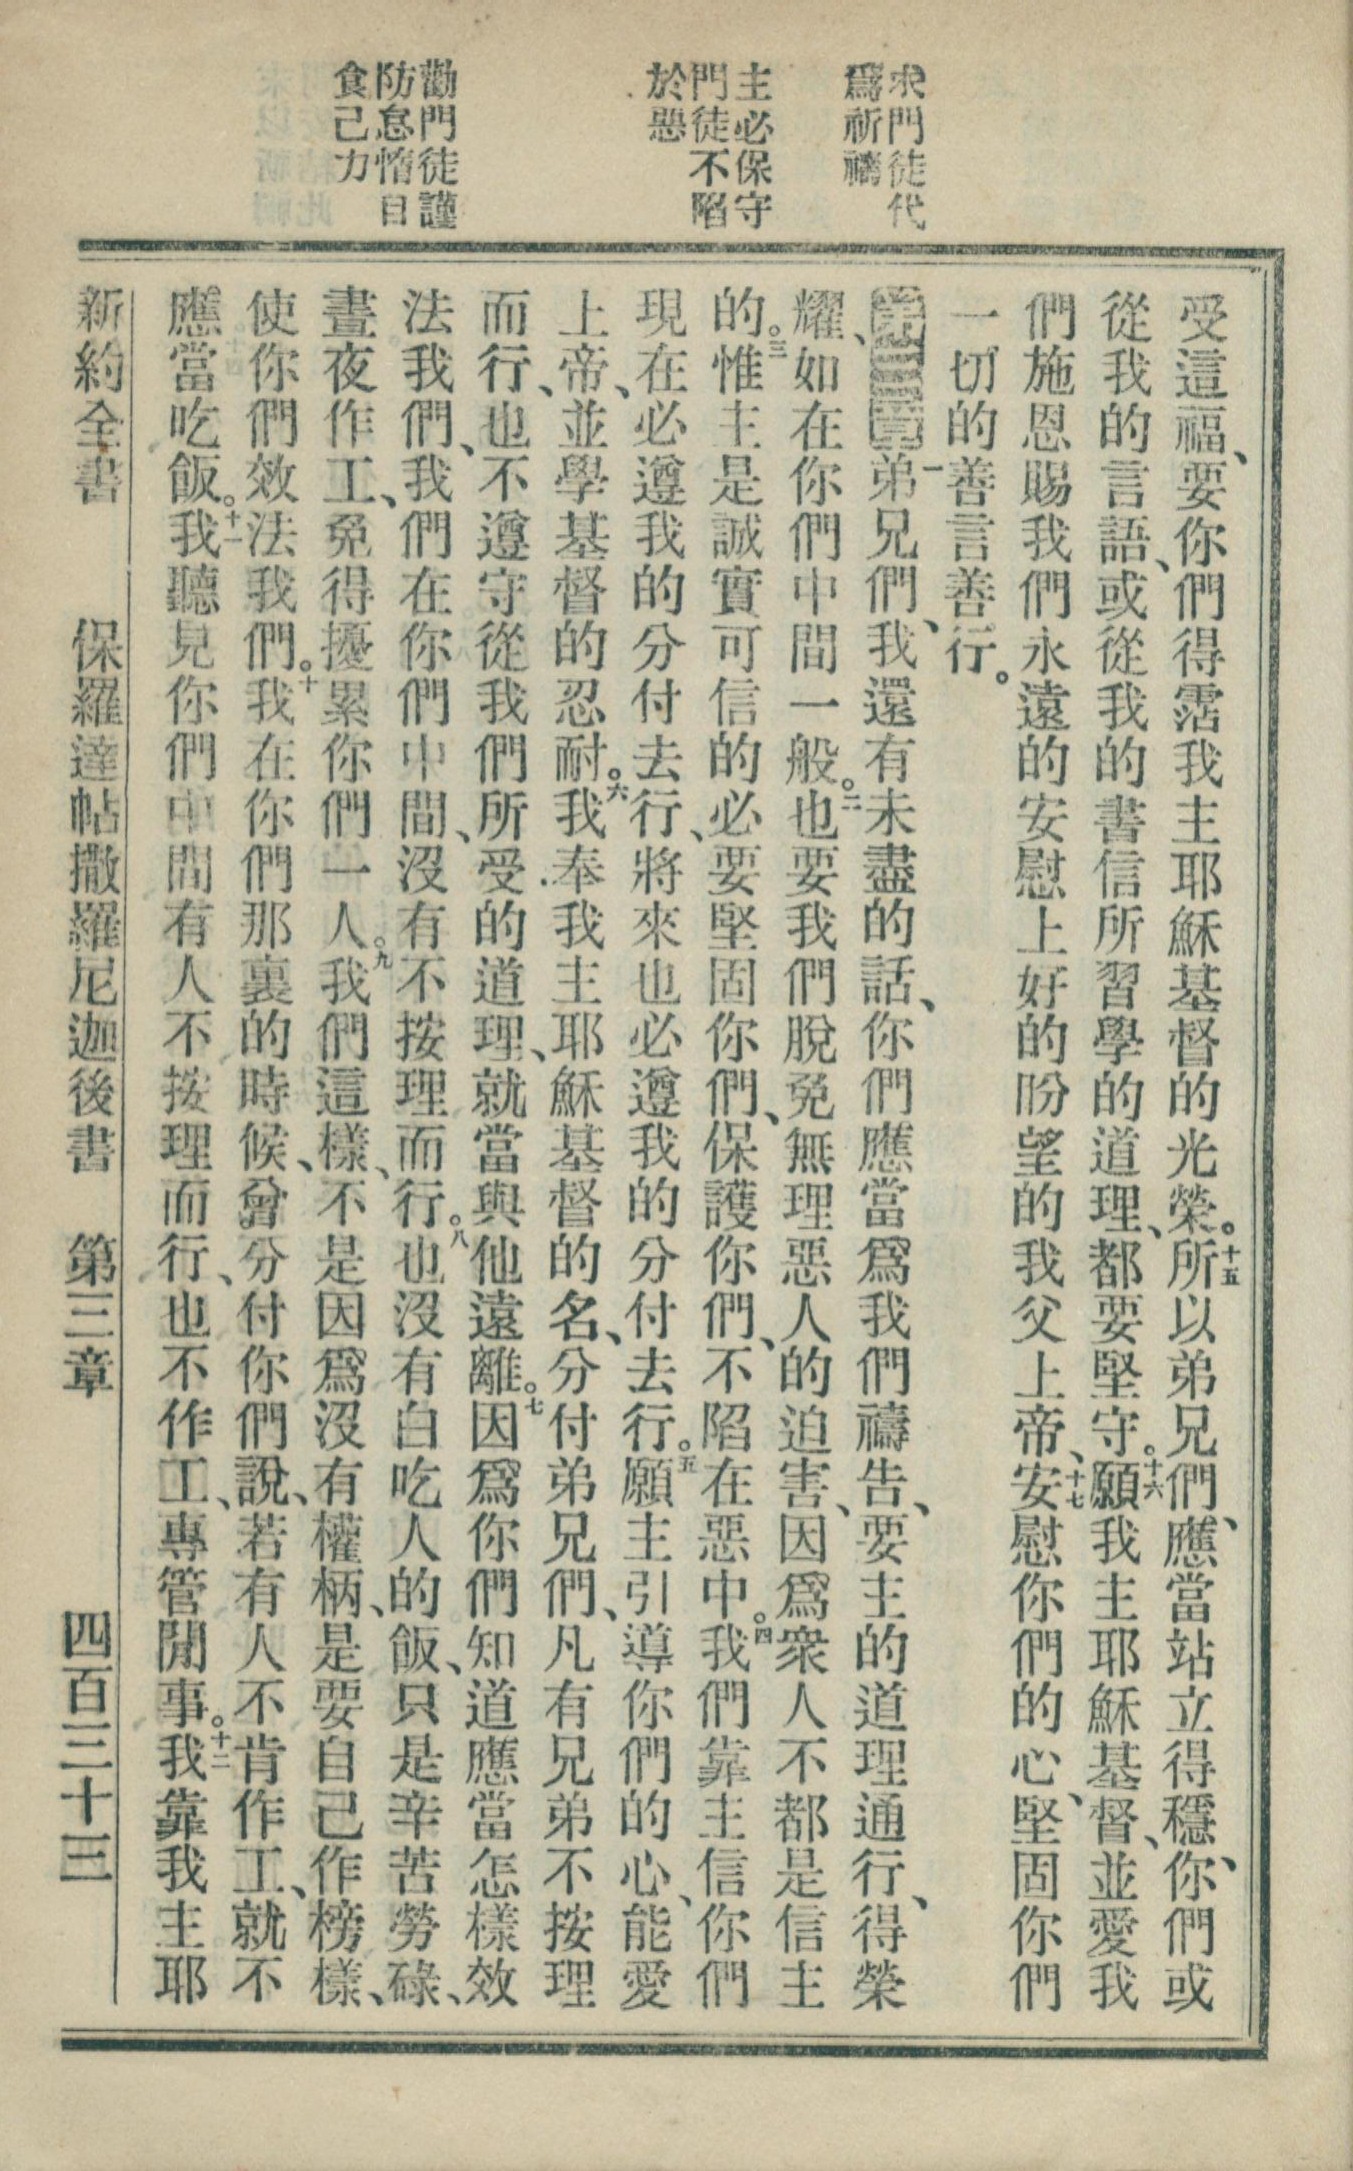 求門徒代
爲祈禱
主必保守
門徒不陷
於惡
勸門徒謹
防怠惰自
食己力
受這福、要你們得霑我主耶穌基督的光榮。十五所以弟兄們、應當站立得穩、你們或
從我的言語、或從我的書信所習學的道理、都要堅守。十六願我主耶穌基督、並愛我
們施恩賜我們永遠的安慰上好的盼望的我父上帝、十七安慰你們的心、堅固你們
一切的善言善行。
第三章一弟兄們、我還有未盡的話、你們應當爲我們禱告、要主的道理通行、得榮
耀、如在你們中間一般。二也要我們脫免無理惡人的迫害、因爲衆人不都是信主
的。三惟主是誠實可信的必要堅固你們、保護你們、不陷在惡中。四我們靠主信你們
現在必遵我的分付去行、將來也必遵我的分付去行。五願主引導你們的心、能愛
上帝、並學基督的忍耐。六我奉我主耶穌基督的名、分付弟兄們、凡有兄弟不按理
而行、也不遵守從我們所受的道理、就當與他遠離。七因爲你們知道應當怎樣效
法我們、我們在你們中間、沒有不按理而行。八也沒有白吃人的飯、只是辛苦勞碌、
晝夜作工、免得擾累你們一人。九我們這樣、不是因爲沒有權柄、是要自己作榜樣、
使你們效法我們。十我在你們那裏的時候、曾分付你們說、若有人不肯作工、就不
應當吃飯。十一我聽見你們中間有人不按理而行、也不作工、專管閒事。十二我靠我主耶
新約全書 保羅達帖撒羅尼迦後書 第三章 四百三十三